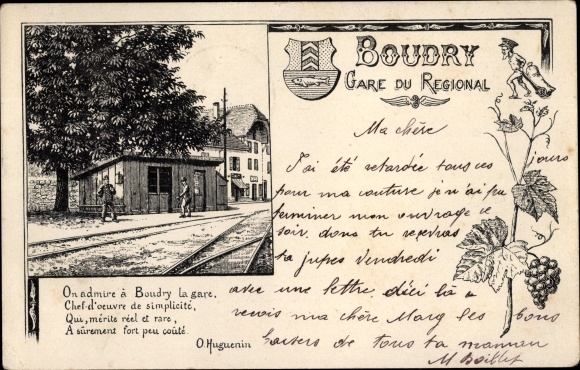 BOUDRY
GARE DU REGIONAL
Ma chère
J'ai été retardée tous ces jours
pour ma couture je n'ai pu
terminer mon ouvrage ce
soir donc tu recevras
ta jupes Vendredi
avec une lettre d'ici là
recois ma chère Marg les bons
baisers de tous ta maman
On admire à Boudry la gare,
Chef-d'oeuvre de simplicité,
Qui, mérite réel et rare,
A sûrement fort peu coûté.
O. Huguenin